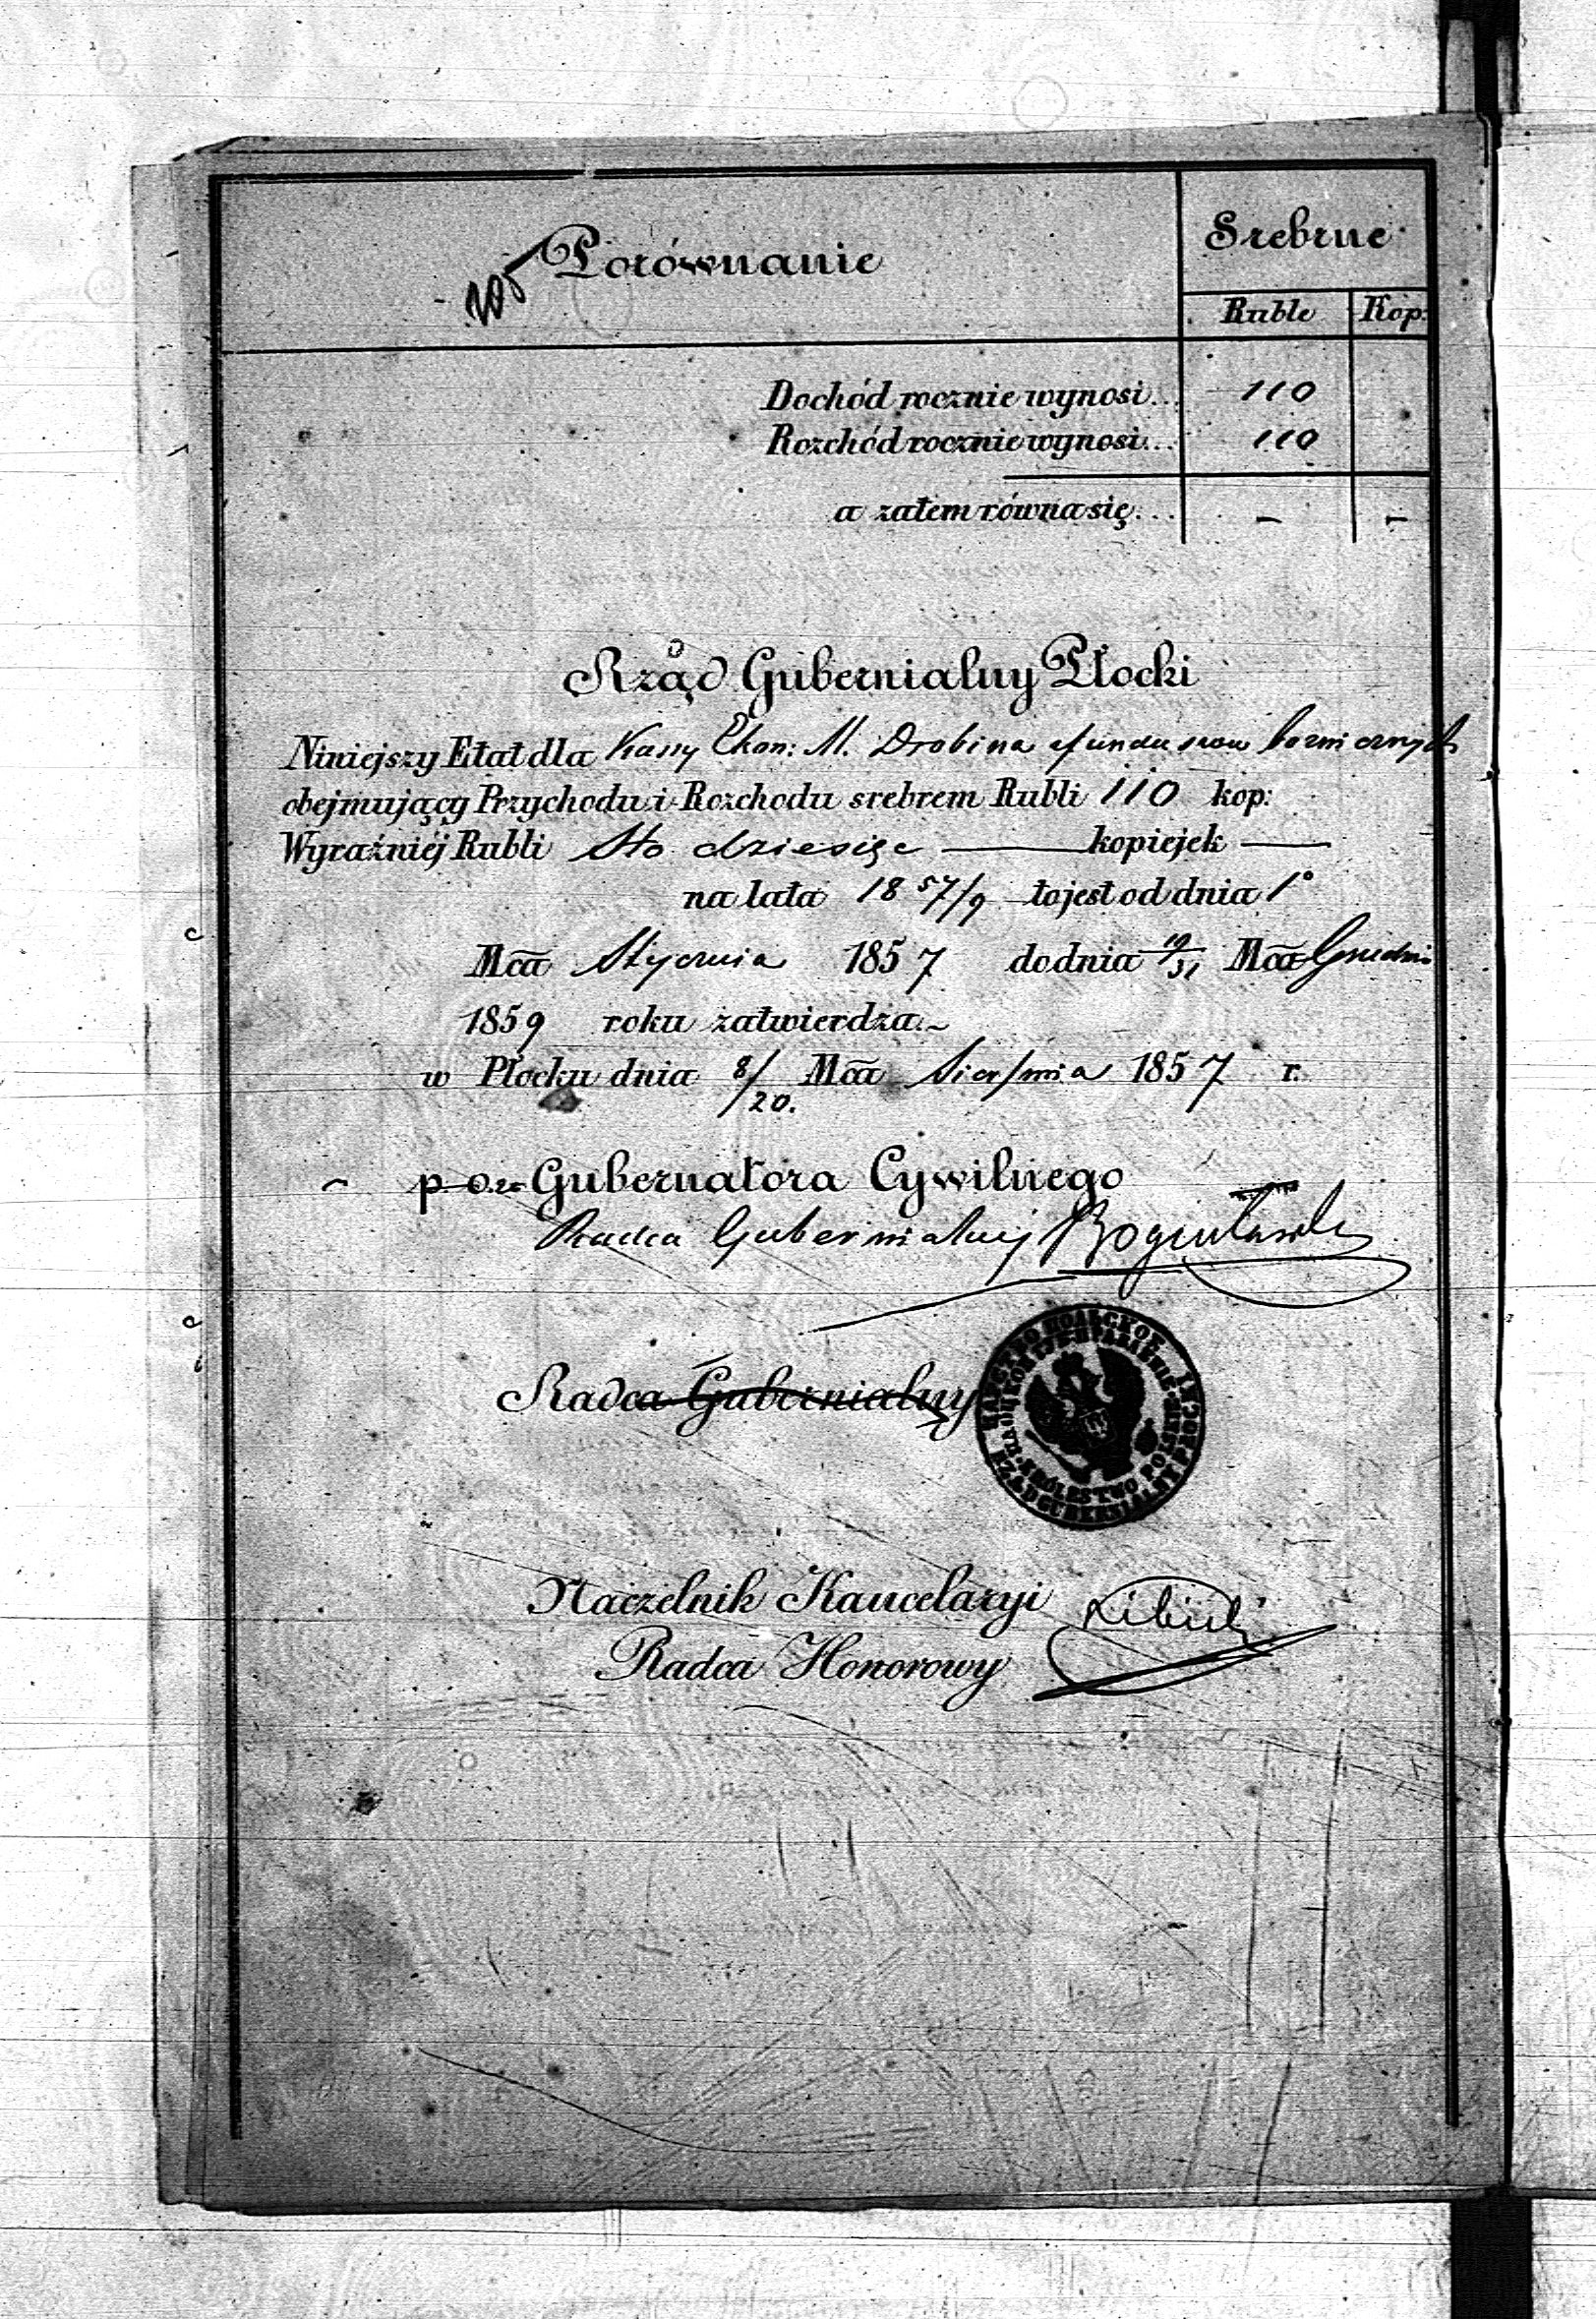 Porównanie
Srebrne
Ruble Kop:
Dochód rocznie wynosi... 110
Rozchód rocznie wynosi... 110
a zatem równa się... – –
Rząd Gubernialny Płocki
Niniejszy Etat dla Kassy Ekon: M. Drobina z funduszów
obejmujący Przychodu i Rozchodu srebrem Rubli 110 kop:
Wyraźniéj Rubli Sto dziesięć — kopiejek —
na lata 1857/9 to jest od dnia 1°
Mca Stycznia 1857 do dnia 19/31 Mca Grudnia
1859 roku zatwierdza.~
w Płocku dnia 8/20. Mca Sierpnia 1857 r.
p. o. Gubernatora Cywilnego
Radca Gubernialny
Radca Gubernialny
ЦАРСТВО ПОЛЬСКОЕ
KRÓLESTWO POLSKIE
RZĄD GUBERNIALNY PŁOCKI
Naczelnik Kancelaryi
Radca Honorowy